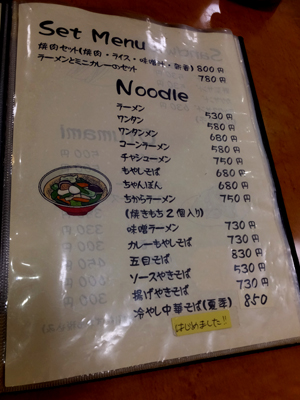 Set Menu
焼肉セット(焼肉・ライス・味噌汁・新香) 800円
ラーメンとミニカレーのセット 780円
Noodle
ラーメン 530円
ワンタン 580円
ワンタンメン 680円
コーンラーメン 580円
チャシューメン 750円
もやしそば 680円
ちゃんぽん 680円
ちからラーメン 750円
(焼きもち2個入り)
味噌ラーメン 730円
カレーもやしそば 730円
五目そば 830円
ソースやきそば 530円
揚げやきそば 730円
冷やし中華そば(夏季) 850
はじめました!!